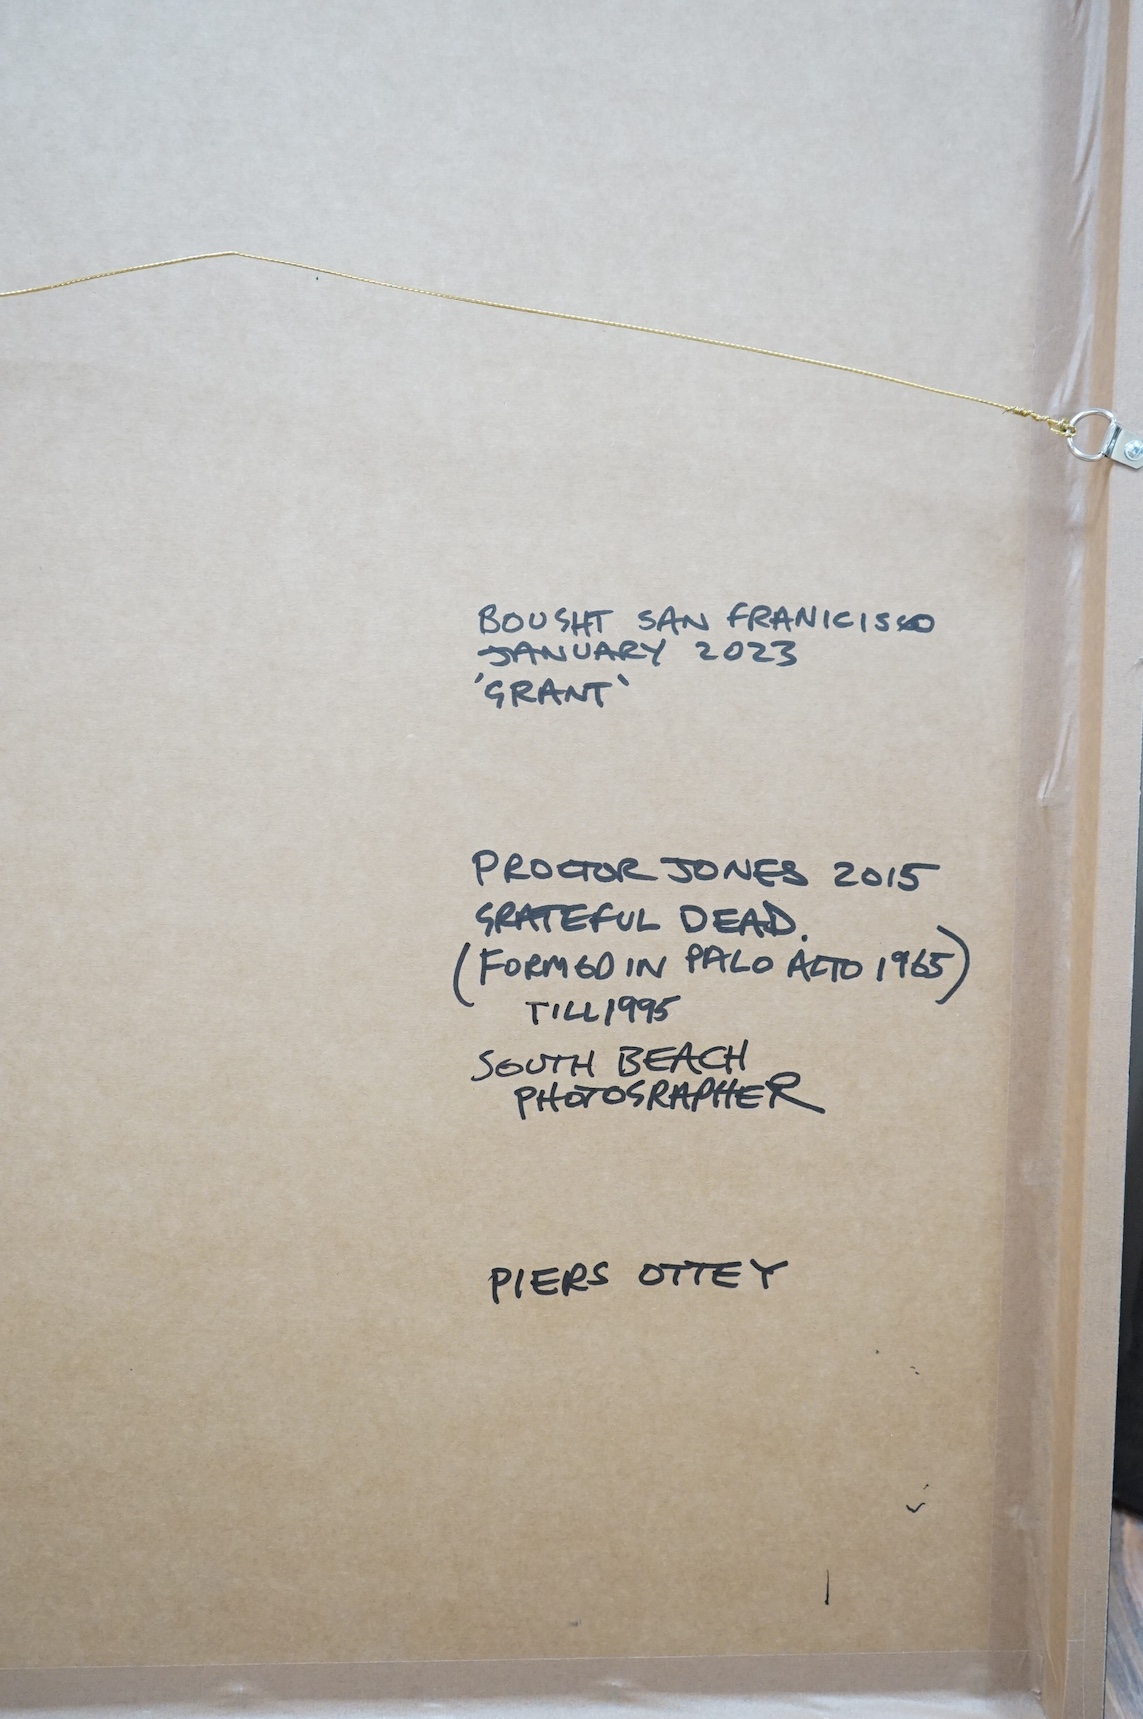 BOUGHT SAN FRANICISCO
JANUARY 2023
'GRANT'
PROCTOR JONES 2015
GRATEFUL DEAD.
(FORMED IN PALO ALTO 1965)
TILL 1995
SOUTH BEACH
PHOTOGRAPHER
PIERS OTTEY